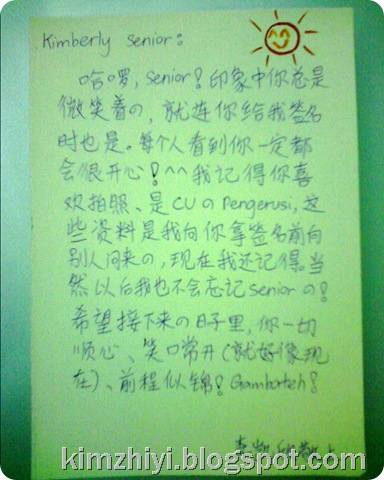 Kimberly senior:
哈啰, Senior! 印象中你总是
微笑着の, 就连你给我签名
时也是。每个人看到你一定都
会很开心! ^^ 我记得你喜
欢拍照、是CUのPengerusi, 这
些资料是我向你拿签名前向
别人问来の, 现在我还记得。当
然以后我也不会忘记seniorの!
希望接下来の日子里, 你一切
顺心、笑口常开(就好像现
在)、前程似锦! Gambateh!
kimzhiyi.blogspot.com